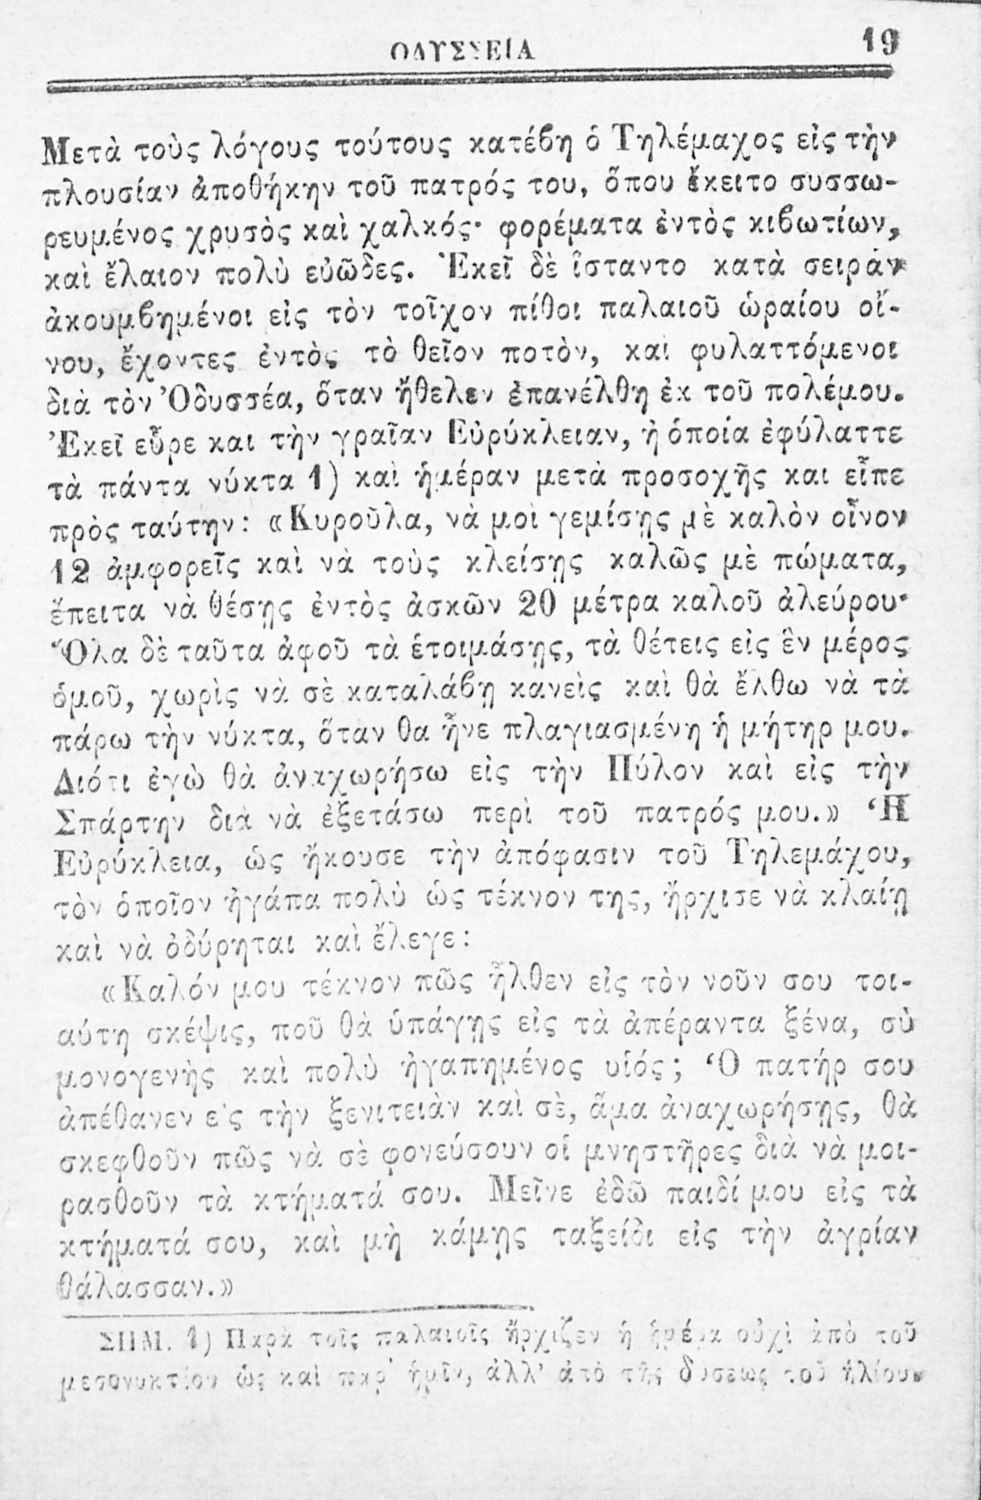 ΟΔΥΣΣΕΙΑ 19
Μετὰ τοὺς λόγους τούτους κατέβη ὁ Τηλέμαχος εἰς τὴν
πλουσίαν ἀποθήκην τοῦ πατρός του, ὅπου ἔκειτο συσσω-
ρευμένος χρυσὸς καὶ χαλκός· φορέματα ἐντὸς κιβωτίων,
καὶ ἔλαιον πολὺ εὐῶδες. Ἐκεῖ δὲ ἵσταντο κατὰ σειρὰν
ἀκουμβημένοι εἰς τὸν τοῖχον πίθοι παλαιοῦ ὡραίου οἴ-
νου, ἔχοντες ἐντὸς τὸ θεῖον ποτὸν, καὶ φυλαττόμενοι
διὰ τὸν Ὀδυσσέα, ὅταν ἤθελεν ἐπανέλθῃ ἐκ τοῦ πολέμου.
Ἐκεῖ εὗρε και τὴν γραῖαν Εὐρύκλειαν, ἡ ὁποία ἐφύλαττε
τὰ πάντα νύκτα 1) καὶ ἡμέραν μετὰ προσοχῆς και εἶπε
πρὸς ταύτην: «Κυροῦλα, νὰ μοὶ γεμίσῃς μὲ καλὸν οἶνον
12 ἀμφορεῖς καὶ νὰ τοὺς κλείσῃς καλῶς μὲ πώματα,
ἔπειτα νὰ θέσῃς ἐντὸς ἀσκῶν 20 μέτρα καλοῦ ἀλεύρου·
Ὅλα δὲ ταῦτα ἀφοῦ τὰ ἑτοιμάσῃς, τὰ θέτεις εἰς ἓν μέρος
ὁμοῦ, χωρὶς νὰ σὲ καταλάβῃ κανεὶς καὶ θὰ ἔλθω νὰ τὰ
πάρω τὴν νύκτα, ὅταν θα ἦνε πλαγιασμένη ἡ μήτηρ μου.
Διότι ἐγὼ θὰ ἀναχωρήσω εἰς τὴν Πύλον καὶ εἰς τὴν
Σπάρτην διὰ νὰ ἐξετάσω περὶ τοῦ πατρός μου.» Ἡ
Εὐρύκλεια, ὡς ἤκουσε τὴν ἀπόφασιν τοῦ Τηλεμάχου,
τὸν ὁποῖον ἠγάπα πολὺ ὡς τέκνον της, ἤρχισε νὰ κλαίῃ
καὶ νὰ ὀδύρηται καὶ ἔλεγε:
«Καλόν μου τέκνον πῶς ἦλθεν εἰς τὸν νοῦν σου τοι-
αύτη σκέψις, ποῦ θὰ ὑπάγῃς εἰς τὰ ἀπέραντα ξένα, σὺ
μονογενὴς καὶ πολὺ ἠγαπημένος υἱός; Ὁ πατήρ σου
ἀπέθανεν εἰς τὴν ξενιτειὰν καὶ σὲ, ἅμα ἀναχωρήσῃς, θὰ
σκεφθοῦν πῶς νὰ σὲ φονεύσουν οἱ μνηστῆρες διὰ νὰ μοι-
ρασθοῦν τὰ κτήματά σου. Μεῖνε ἐδῶ παιδί μου εἰς τὰ
κτήματά σου, καὶ μὴ κάμῃς ταξείδι εἰς τὴν ἀγρίαν
θάλασσαν.»
ΣΗΜ. 1) Παρὰ τοῖς παλαιοῖς ἤρχιζεν ἡ ἡμέρα οὐχὶ ἀπὸ τοῦ
μεσονυκτίου ὡς καὶ παρ' ἡμῖν, ἀλλ' ἀπὸ τῆς δύσεως τοῦ ἡλίου.